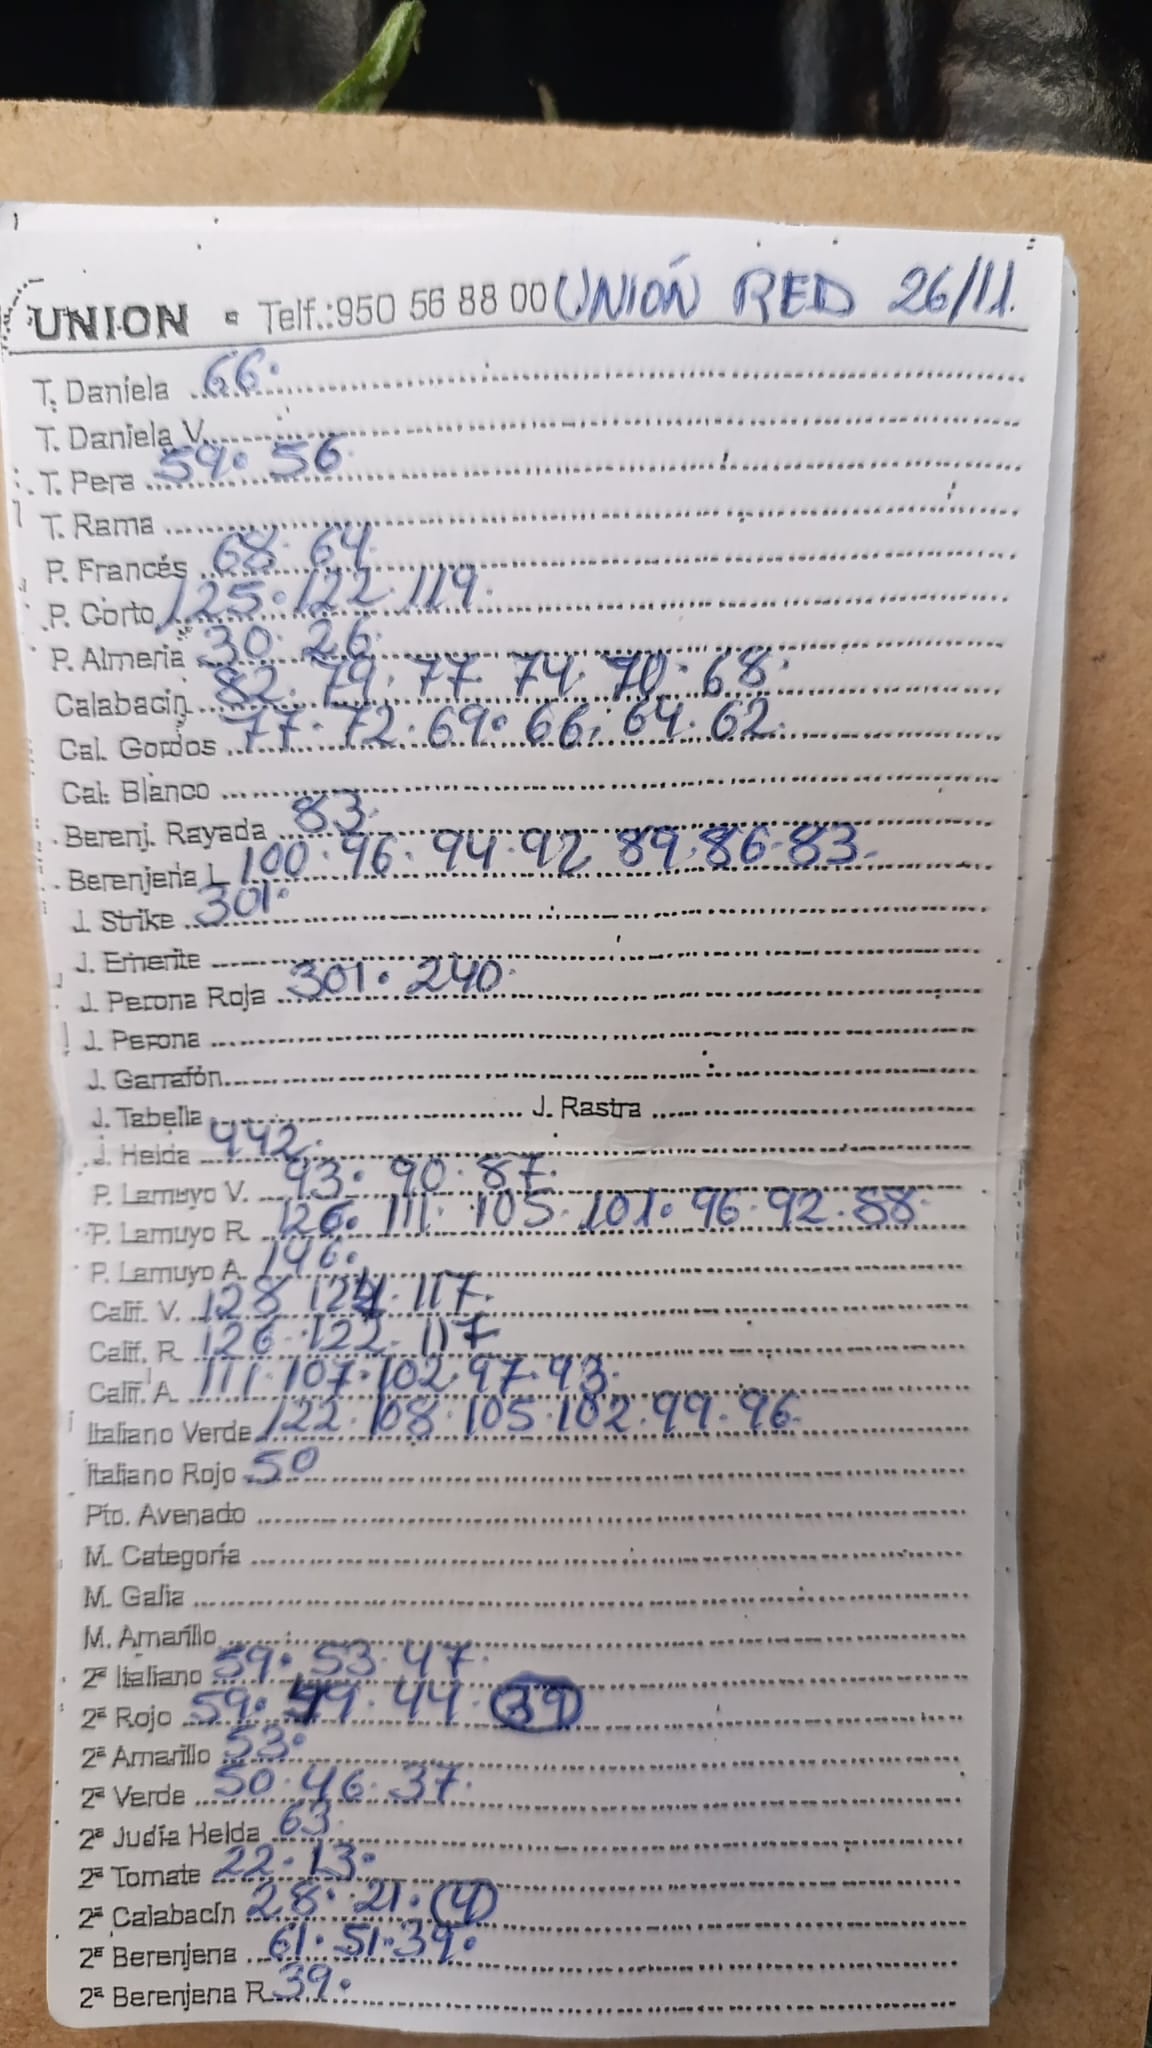 UNION • Telf.:950 56 88 00 UNIÓN RED 26/11.
T. Daniela 66.
T. Daniela V.
T. Pera 59. 56
T. Rama
P. Francés 68. 64.
P. Corto 125. 122. 119.
P. Almería 30. 26.
Calabacín 82. 79. 77. 74. 70. 68.
Cal. Gordos 77. 72. 69. 66. 64. 62.
Cal. Blanco
Berenj. Rayada 83.
Berenjena L 100. 96. 94. 92 89. 86. 83.
J. Strike 301.
J. Emerite
J. Perona Roja 301. 240.
J. Perona
J. Garrafón
J. Tabella J. Rastra
J. Helda 442.
P. Lamuyo V. 93. 90. 87.
P. Lamuyo R. 126. 111. 105. 101. 96. 92. 88.
P. Lamuyo A. 146.
Calif. V. 128 124. 117.
Calif. R. 126. 122. 117
Calif. A. 111. 107. 102. 97. 93.
Italiano Verde 122. 108. 105. 102. 99. 96.
Italiano Rojo 50
Pto. Avenado
M. Categoría
M. Galia
M. Amarillo
2ª Italiano 59. 53. 47.
2ª Rojo 59. 49. 44. 39
2ª Amarillo 53.
2ª Verde 50. 46. 37.
2ª Judía Helda 63.
2ª Tomate 22. 13.
2ª Calabacín 28. 21. (4)
2ª Berenjena 61. 51. 39.
2ª Berenjena R. 39.